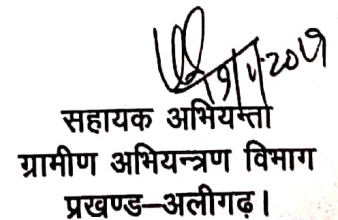 सहायक अभियन्ता
ग्रामीण अभियन्त्रण विभाग
प्रखण्ड–अलीगढ़।